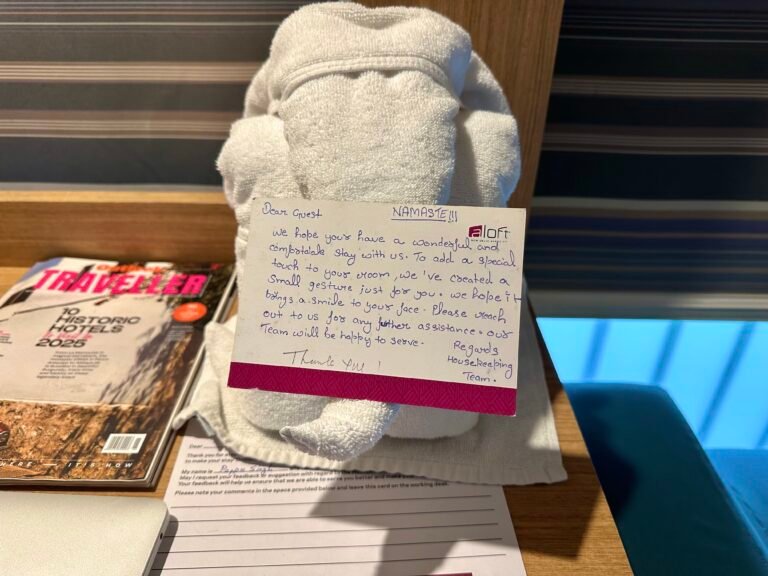 Dear Guest NAMASTE!!!
aloft
We hope your have a wonderful and
comfortable stay with us. To add a special
touch to your room, we've created a
small gesture just for you. we hope it
brings a smile to your face. Please reach
out to us for any futher assistance. our
Team will be happy to serve.
Regards
Housekeeping
Team.
Thank you!
TRAVELLER
10
HISTORIC
HOTELS
2025
IT IS NOW
Dear
Thank you for
to make your stay
My name is Pappu Singh
May I request your feedback or suggestion with regard to
Your feedback will help us ensure that we are able to serve you better and make your
Please note your comments in the space provided below and leave this card on the working desk.